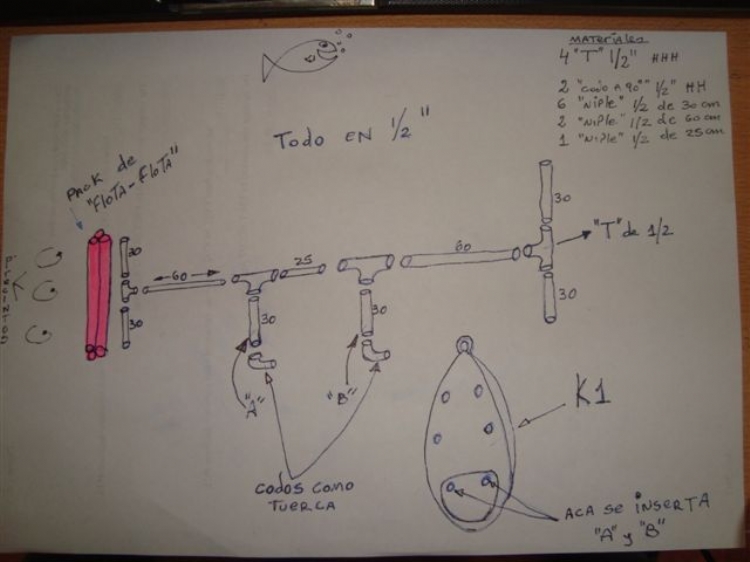 MATERÍALES
4 "T" 1/2" HHH
2 "codo A 90°" 1/2" HH
6 "NIPLE" 1/2 de 30 cm
2 "NIPLE" 1/2 de 60 cm
1 "NIPLE" 1/2 de 25 cm
Todo EN 1/2"
PACK de
"FLOTA-FLOTA"
30
30
60
25
60
30
30
30
30
"T" de 1/2
"A"
"B"
K1
CODOS COMO
TUERCA
ACA SE INSERTA
"A" y "B"